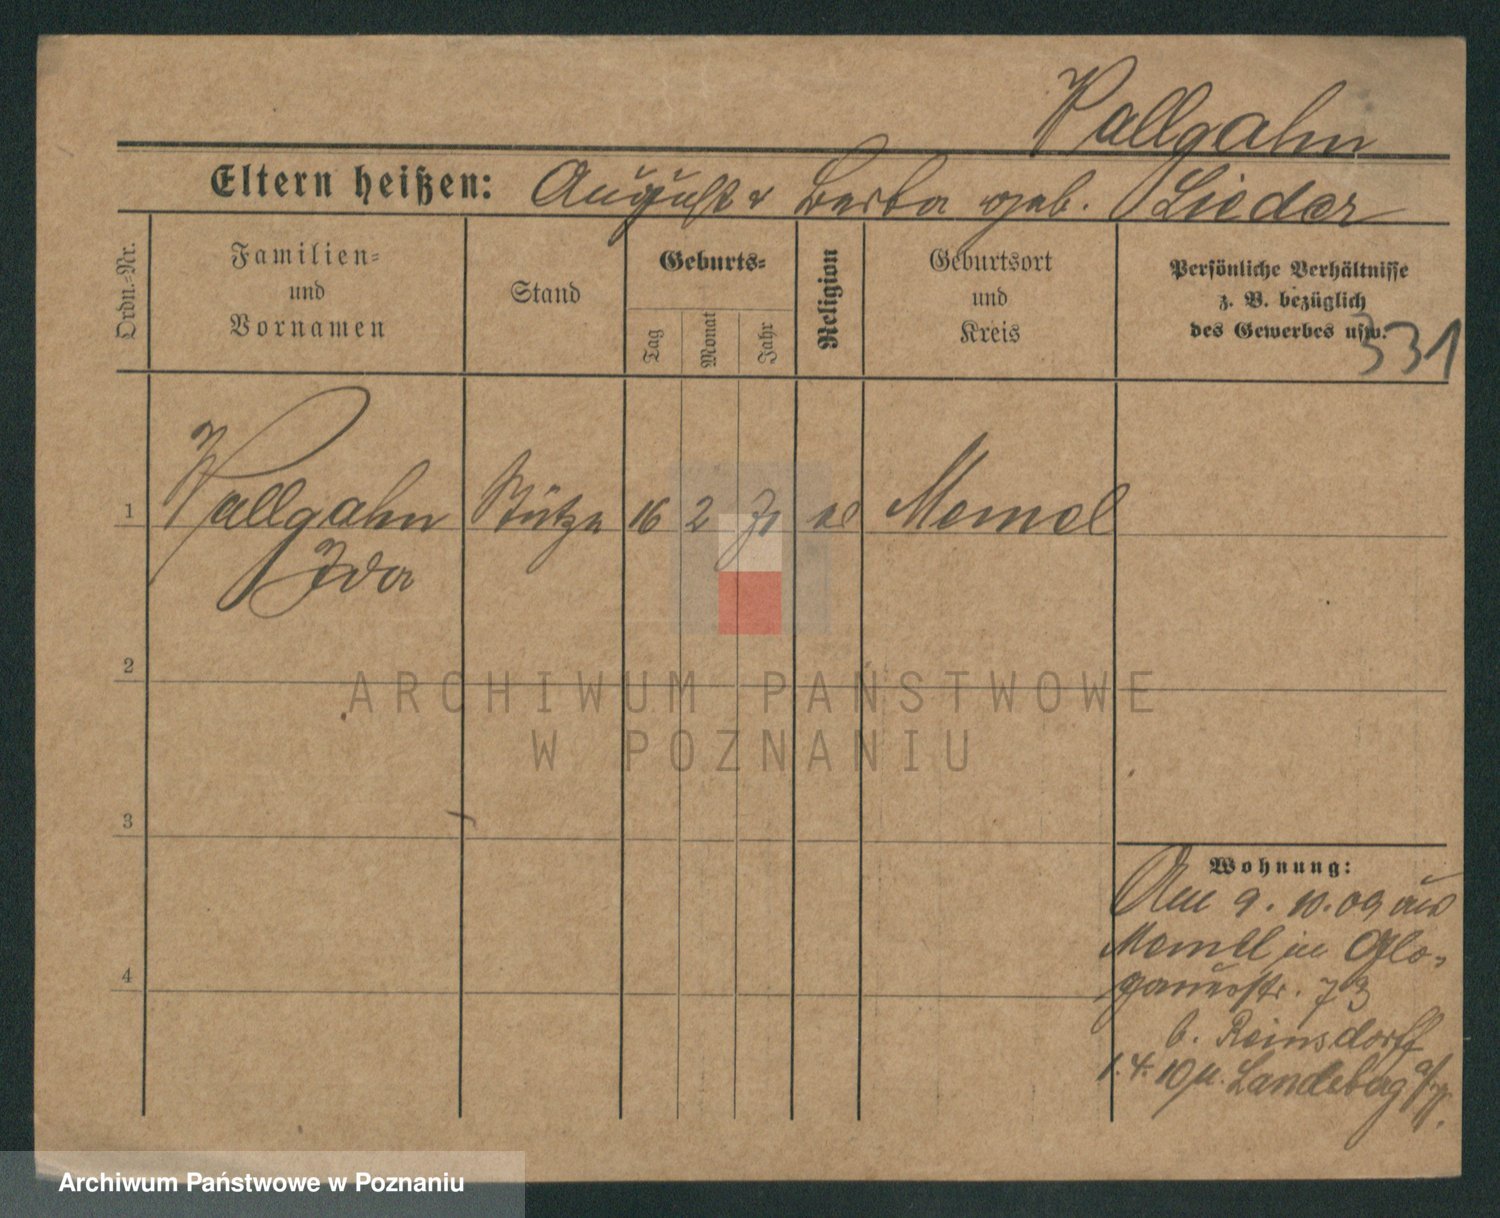 Wallgahn
Eltern heißen: August u Berta geb. Lieder
Ordn.-Nr.
Familien-
und
Vornamen
Stand
Geburts-
Tag
Monat
Jahr
Religion
Geburtsort
und
Kreis
Persönliche Verhältnisse
z. B. bezüglich
des Gewerbes usw.
331
1 Wallgahn Stütze 16 2 71 Memel
Ida
2
3
4
Wohnung:
Am 9. 10. 09 aus
Memel in Glo-
gauerstr. 73
b. Reinsdorff
1. 4. 10 n. Landsberg a/W.
ARCHIWUM PAŃSTWOWE
W POZNANIU
Archiwum Państwowe w Poznaniu